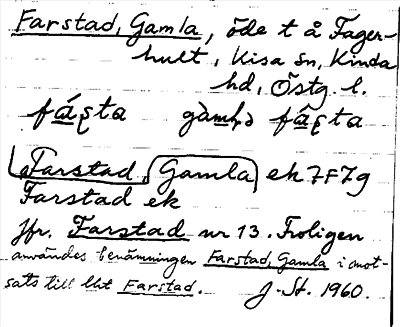 Farstad, Gamla, öde t å Fager-
hult, Kisa sn, Kinda
hd, Östg. l.
Farstad, Gamla ek 7F7g
Farstad ek
Jfr. Farstad nr 13. Troligen
användes benämningen Farstad, Gamla i mot-
sats till lht Farstad. J. St. 1960.